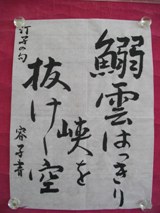 鰯雲はっきり
峡を
抜けし空
汀子の句
容子書